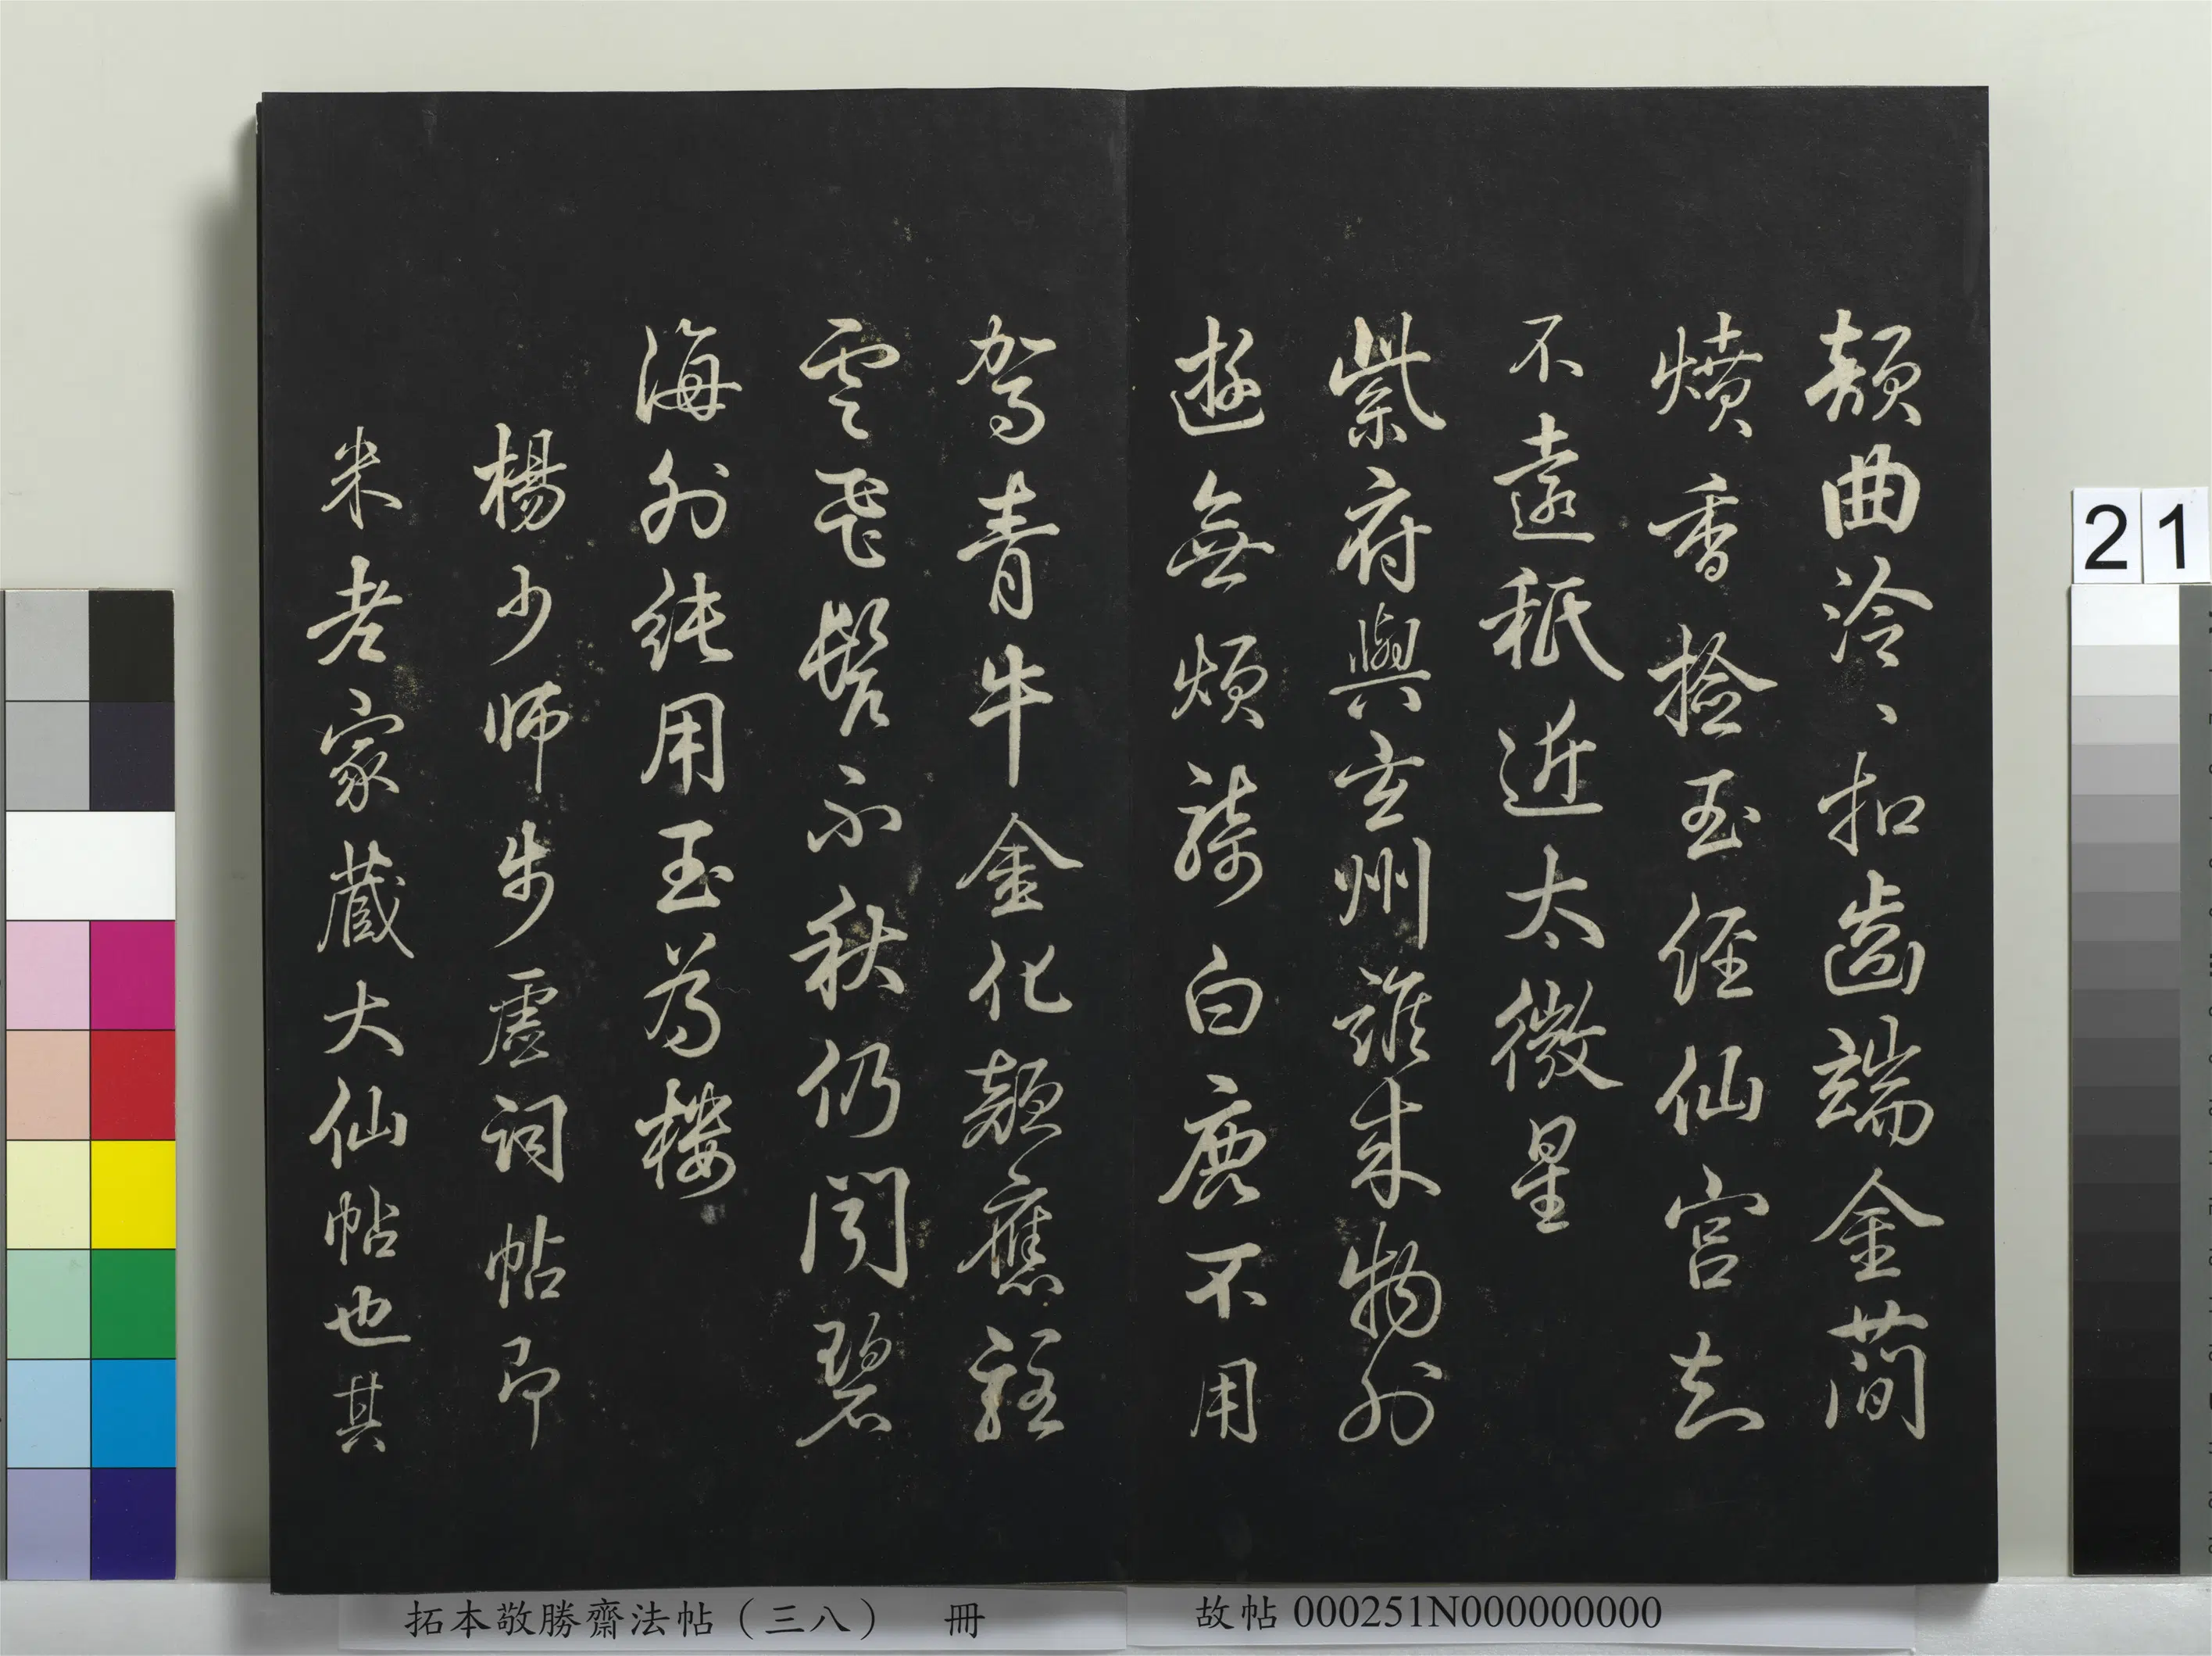 韻曲泠〻扣齒端金蕳
燌香捡玉经仙宫知
不遠秖近太微星
紫府與玄州誰来物外
遊無煩騎白鹿不用
驾青牛金化顏應駐
雲飛鬢不秋仍闻碧
海外純用玉為楼
楊少师步虛词帖即
米老家蔵大仙帖也其
21
拓本敬勝齋法帖（三八） 冊
故帖000251N000000000